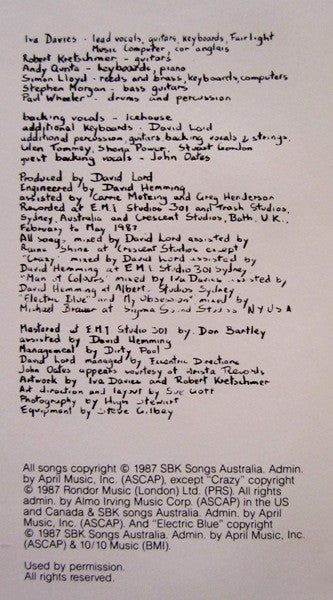 Iva Davies - lead vocals, guitars, keyboards, Fairlight
Music Computer, cor anglais
Robert Kretschmer - guitars
Andy Qunta - keyboards, piano
Simon Lloyd - reeds and brass, keyboards, computers
Stephen Morgan - bass guitars
Paul Wheeler - drums and percussion
backing vocals - Icehouse
additional keyboards - David Lord
additional percussion, guitars, backing vocals & strings.
Glen Tommey, Shena Power, Stuart Gordon
guest backing vocals - John Oates
Produced by David Lord
Engineered by David Hemming
assisted by Carrie Motzing and Greg Henderson
Recorded at E.M.I Studios 301 and Trash Studios,
Sydney, Australia and Crescent Studios, Bath, U.K.,
February to May 1987
All songs mixed by David Lord assisted by
"Shine" at Crescent Studios except
"Crazy" mixed by David Lord assisted by
David Hemming at EMI Studio 301 Sydney
"Man of Colours" mixed by Iva Davies assisted by
David Hemming at Albert Studios Sydney
"Electric Blue" and "My Obsession" mixed by
Michael Brauer at Sigma Sound Studios NY USA
Mastered at EMI Studio 301 by Don Bartley
assisted by David Hemming
Management by Dirty Pool
David Lord managed by Eccentric Directions
John Oates appears courtesy of Arista Records
Artwork by Iva Davies and Robert Kretschmer
Art direction and layout by Sue Gott
Photography by Hugh Stewart
Equipment by Steve Gilbey
All songs copyright © 1987 SBK Songs Australia. Admin.
by April Music, Inc. (ASCAP), except "Crazy" copyright
© 1987 Rondor Music (London) Ltd. (PRS). All rights
admin. by Almo Irving Music Corp. (ASCAP) in the US
and Canada & SBK songs Australia. Admin. by April
Music, Inc. (ASCAP). And "Electric Blue" copyright
© 1987 SBK Songs Australia. Admin. by April Music, Inc.
(ASCAP) & 10/10 Music (BMI).
Used by permission.
All rights reserved.